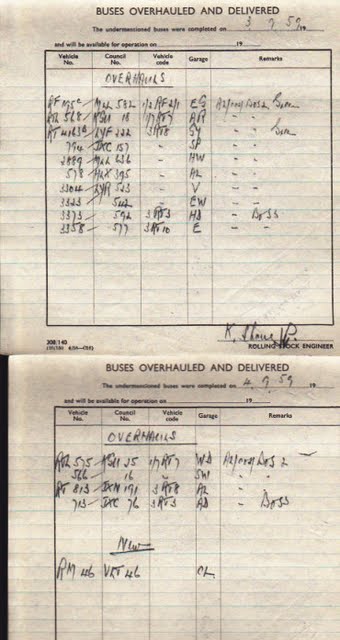 BUSES OVERHAULED AND DELIVERED
The undermentioned buses were completed on 3.9.59 19
and will be available for operation on 19
Vehicle No. Council No. Vehicle code Garage Remarks
OVERHAULS
RF MLL 582 1/2RF2/1 EG
RTL 568 KGU 18 1/7RT7 AR " "
RT 4163 LYF 222 3RT8 SY " "
794 JXC 157 " SP " "
2889 MLL 636 " HW " "
578 HLX 395 " AL " "
3304 LYR 523 " V " "
3323 542 " EW " "
3373 592 3RT3 HD " "
3358 577 3RT10 E " "
K. Shave
ROLLING STOCK ENGINEER
308/140
BUSES OVERHAULED AND DELIVERED
The undermentioned buses were completed on 4.9.59 19
and will be available for operation on 19
Vehicle No. Council No. Vehicle code Garage Remarks
OVERHAULS
RTL 575 KGU 25 1/7RT7 WD
566 16 " SW " "
RT 813 JXN 191 3RT8 AL " "
713 JXC 76 3RT3 AD "
New
RM 46 VLT 46 CL